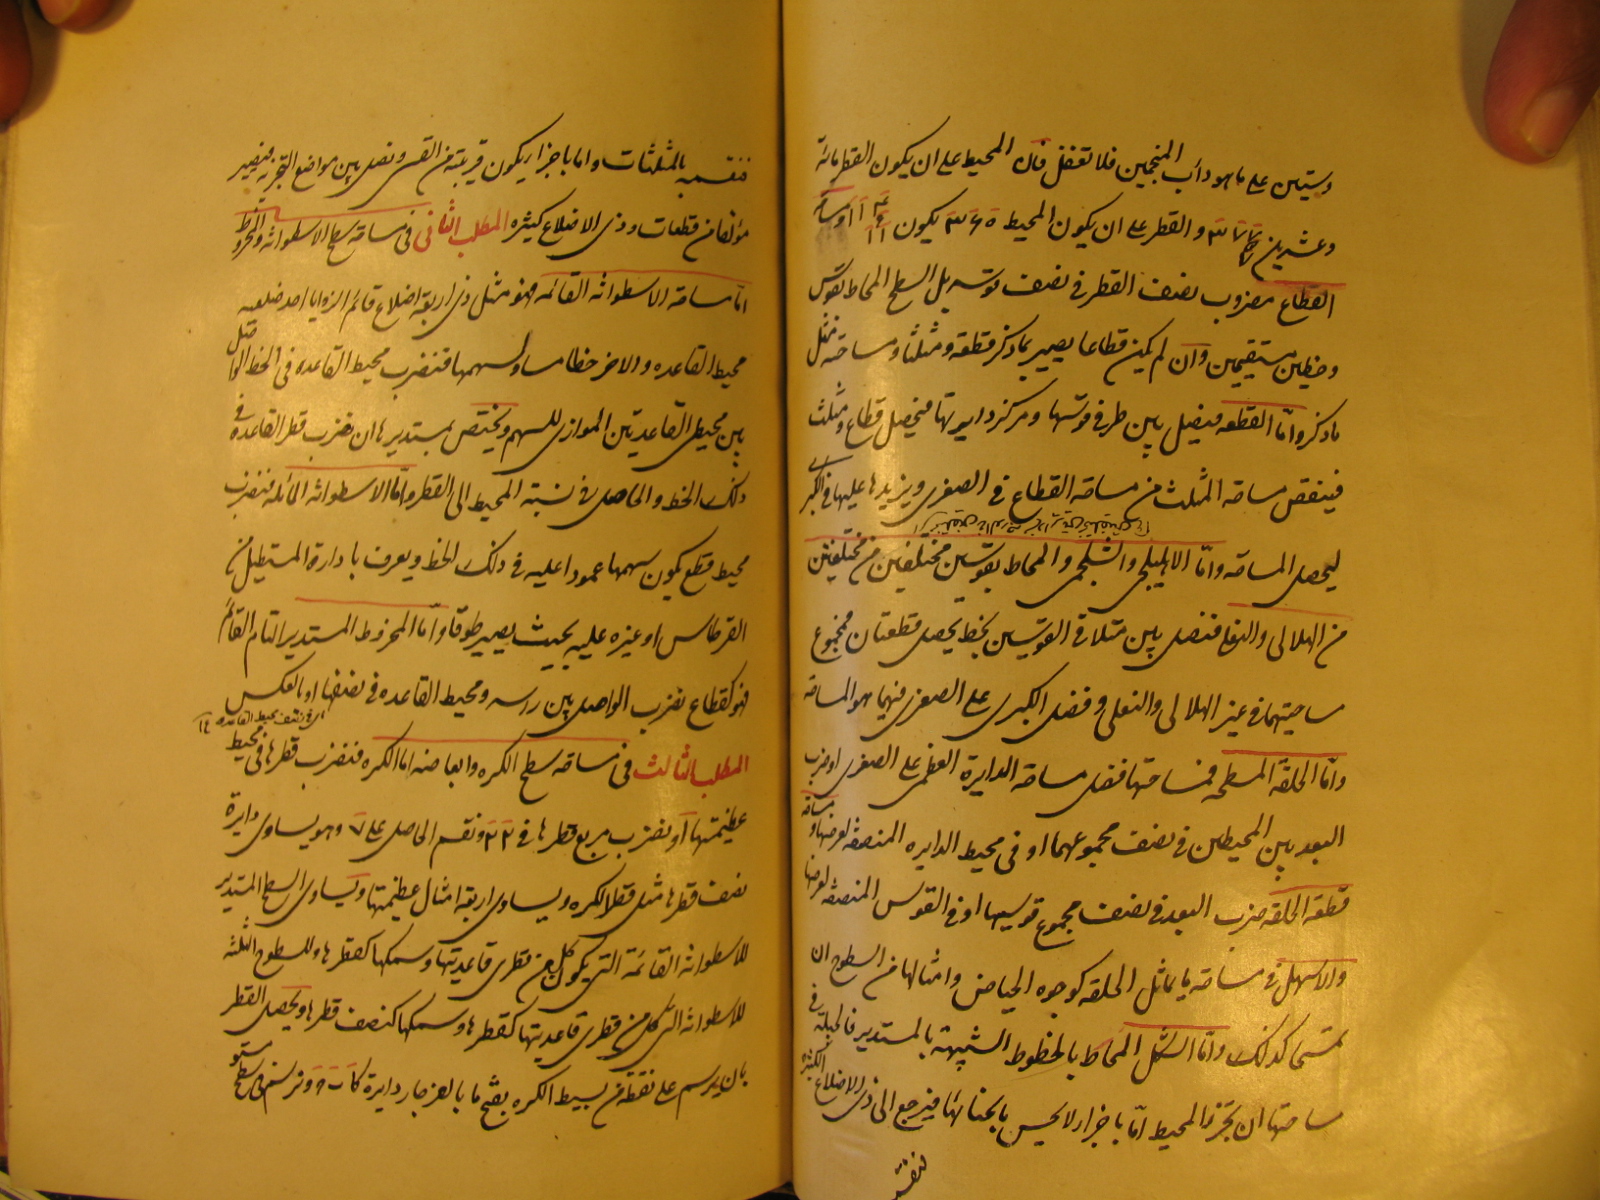 وستين على ما هو دأب المنجمين فلا تغفل فان المحيط على ان يكون القطر مائة
وعشرين والقطر على ان يكون المحيط ٣٦٠ يكون ومساحة
القطاع مضروب نصف القطر في نصف قوسه بل السطح المحاط بقوس
وخطين مستقيمين وان لم يكن قطاعا يصير بما ذكر قطعة ومثلثا ومساحته مثل
ما ذكر واما القطعه فيفصل بين طرفي قوسها ومركز دايرتها فيحصل قطاع ومثلث
فينقص مساحة المثلث من مساحة القطاع في الصغرى ويزيدها عليها في الكبرى
ليحصل المساحة واما الاهليلجي والشلجمي والمحاط بقوسين مختلفين من مختلفين
من الهلالى والنعلى فنصل بين متلاقى القوسين بخط يحصل قطعتان فمجموع
مساحتيهما في غير الهلالى والنعلى وفضل الكبرى على الصغرى فيهما هو المساحة
واما الحلقة المسطحه فمساحتها فضل مساحة الدايرة العظمى على الصغرى او ضرب
البعد بين المحيطين في نصف مجموعهما او في محيط الدايره المنصفة لعرضها ومساحة
قطعة الحلقه ضرب البعد في نصف مجموع قوسيها او في القوس المنصفه لعرضها
والاسهل في مساحة ما يماثل الحلقه كوجوه الحياض وامثالها من السطوح ان
يمسح كذلك واما الشكل المحاط بالخطوط الشبيهة بالمستدير فالحيلة في
مساحتها ان تجزء المحيط اما باجزاء لا يحس بانحنائها فيرجع الى ذى الاضلاع الكثيرة
فنقسمه
فنقسمه بالمثلثات واما باجزاء يكون قريبة من القسى ونصل بين مواضع التجزية فيصير
مؤلفا من قطعات وذى الاضلاع كثيره المطلب الثانى في مساحة سطح الاسطوانه والمخروط
اما مساحة الاسطوانه القائمه فهو مثل ذى اربعة اضلاع قائم الزوايا احد ضلعيه مثل
محيط القاعده والاخر خطا مساو لسهمها فنضرب محيط القاعده في الخط الواصل
بين محيطى القاعدتين الموازى للسهم ويختص بمستديرها ان نضرب قطر القاعدة في
ذلك الخط والحاصل في نسبة المحيط الى القطر واما الاسطوانه المائله فنضرب
محيط قطع يكون سهمها عمودا عليه في ذلك الخط ويعرف بادارة المستطيل من
القرطاس او غيره عليه بحيث يصير طوقا واما المخروط المستدير التام القائم
فهو كقطاع نضرب الواصل بين راسه ومحيط القاعده في نصفها او بالعكس
اى في نصف محيط القاعده
المطلب الثالث في مساحة سطح الكره وابعاضه اما الكره فنضرب قطرها في محيط
عظيمتها او نضرب مربع قطرها في ٢٢ ونقسم الحاصل على ٧ وهو يساوى دايرة
نصف قطرها مثل قطر الكره ويساوى اربعة امثال عظيمتها ويساوى السطح المستدير
للاسطوانه القائمة التى يكون كل من قطرى قاعدتها وسمكها كقطرها وللسطوح الثلثه
للاسطوانه التى كل من قطرى قاعدتيها كقطرها وسمكها كنصف قطرها ويحصل القطر
بان يرسم على نقطة من بسيط الكره بفتح ما بالفرجار دايرة ونرسم في سطح مستو